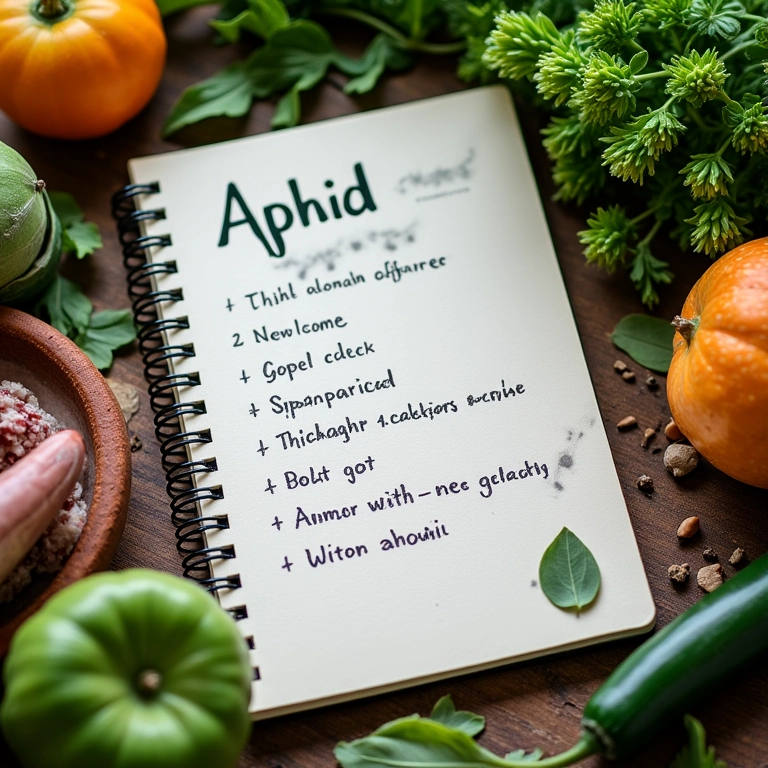 Aphid
+ Thihl alonain offairre
2 Newlcome
+ Gopel cdeck
+ Sipanparicad
+ Thickaghr 1.calktjors
+ Bolit got
+ Anmor with-nee gelactiy
+ Witon ahouiil